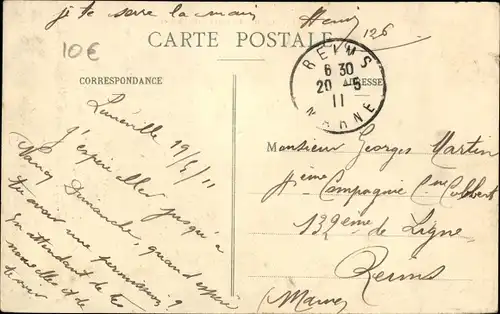 je te serre la main Henri
126
10€
CARTE POSTALE
REIMS
6 30
20 - 5
11
MARNE
CORRESPONDANCE
ADRESSE
Lunéville 19/5/11
J'espère aller jusqu'à
Nancy Dimanche, quand espère
tu avoir une permission?
En attendant de tes
nouvelles et de
te voir
Monsieur Georges Martin
4ème Compagnie Cne Colbert
132ème de Ligne
Reims
(Marne)